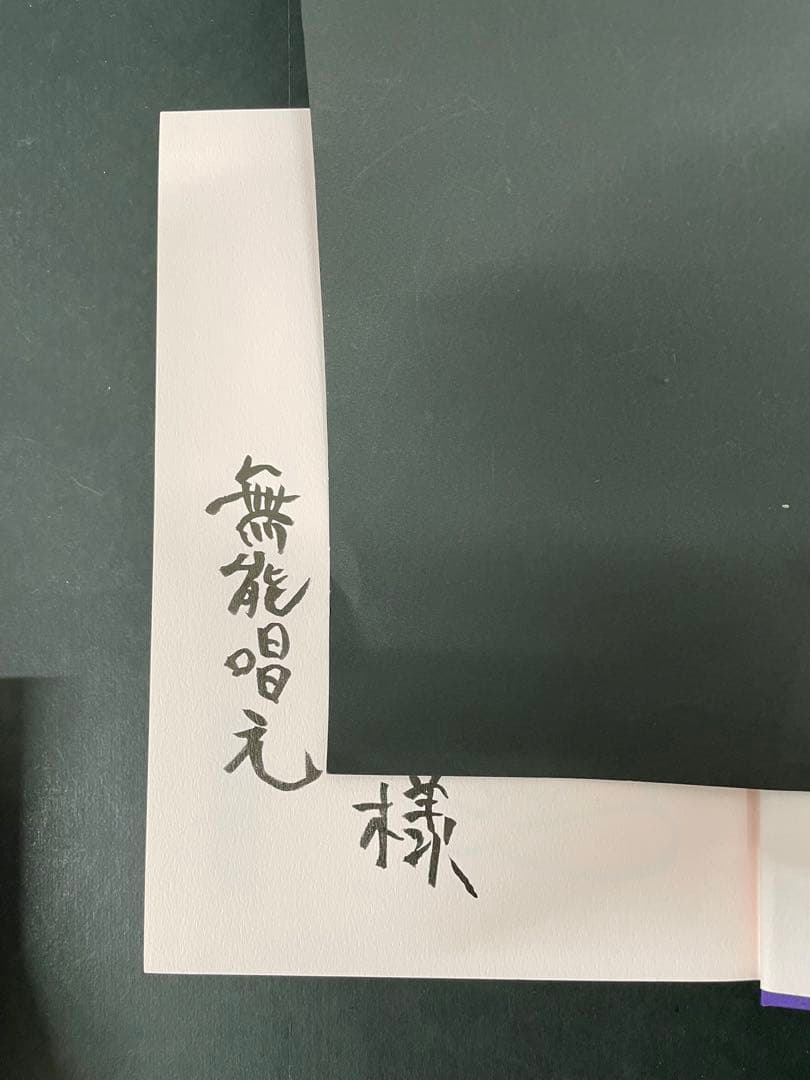 様
無能唱元